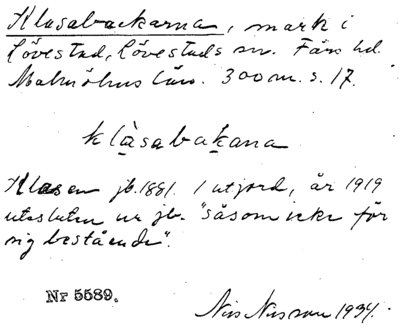 Klasabackarna, mark i
Lövestad, Lövestads sn. Färs hd.
Malmöhus län. 300 m. s. 17.
klàsabakana
Klasen jb. 1881. 1 utjord, år 1919
utesluten ur jb. "såsom icke för
sig bestående".
Nr 5589.
Nils Nilsson 1934.